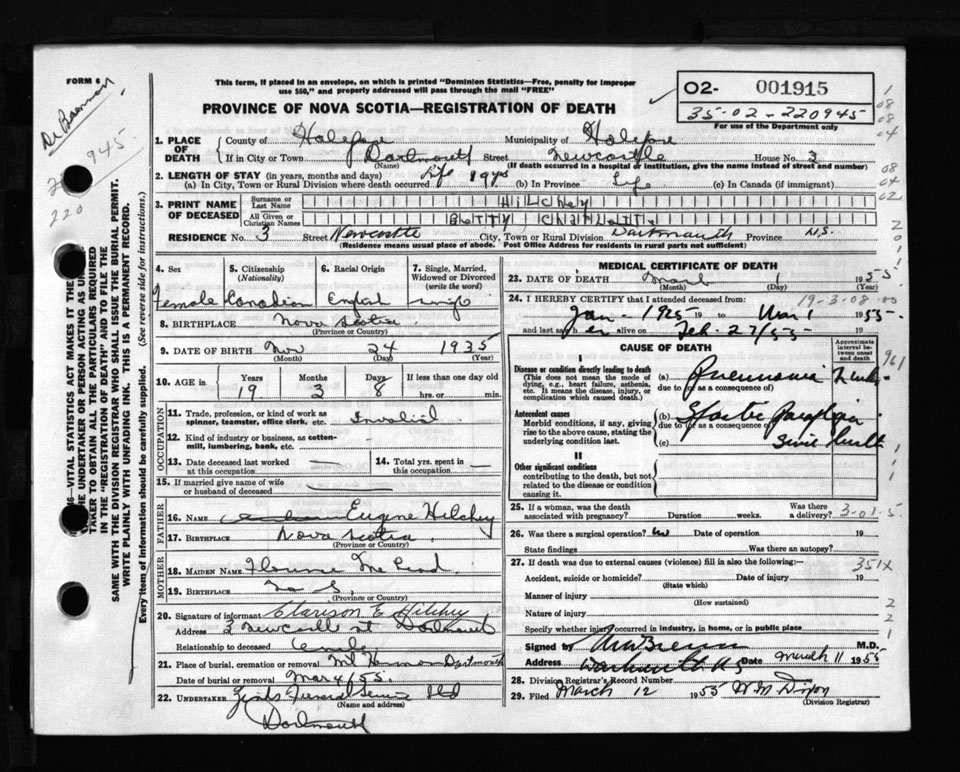 FORM 6
This form, if placed in an envelope, on which is printed "Dominion Statistics—Free, penalty for improper
use $50," and properly addressed will pass through the mail "FREE"
PROVINCE OF NOVA SCOTIA—REGISTRATION OF DEATH
02- 001915
35-02-220945
For use of the Department only
945
220
1. PLACE OF DEATH
County of Halifax Municipality of Halifax
If in City or Town Dartmouth Street Newcastle House No. 3
(Name) (If death occurred in a hospital or institution, give the name instead of street and number)
2. LENGTH OF STAY (in years, months and days)
(a) In City, Town or Rural Division where death occurred Life 19 yrs (b) In Province Life (c) In Canada (if immigrant)
3. PRINT NAME OF DECEASED
Surname or Last Name HILCHEY
All Given or Christian Names BETTY CHARLOTTE
RESIDENCE No. 3 Street Newcastle City, Town or Rural Division Dartmouth Province N.S.
(Residence means usual place of abode. Post Office Address for residents in rural parts not sufficient)
4. Sex Female
5. Citizenship (Nationality) Canadian
6. Racial Origin English
7. Single, Married, Widowed or Divorced (write the word)
8. BIRTHPLACE Nova Scotia
(Province or Country)
9. DATE OF BIRTH Nov 24 1935
(Month) (Day) (Year)
10. AGE in Years Months Days If less than one day old
19 3 8 hrs. or min.
OCCUPATION
11. Trade, profession, or kind of work as spinner, teamster, office clerk, etc. Invalid
12. Kind of industry or business, as cotton-mill, lumbering, bank, etc.
13. Date deceased last worked at this occupation
14. Total yrs. spent in this occupation
15. If married give name of wife or husband of deceased
FATHER
16. NAME Eugene Hilchey
17. BIRTHPLACE Nova Scotia
(Province or Country)
MOTHER
18. MAIDEN NAME
19. BIRTHPLACE
(Province or Country)
20. Signature of informant Hilchey
Address 3 Newcastle st Dartmouth
Relationship to deceased
21. Place of burial, cremation or removal Dartmouth
Date of burial or removal Mar 4/55.
22. UNDERTAKER Funeral Service Ltd
(Name and address)
Dartmouth
MEDICAL CERTIFICATE OF DEATH
23. DATE OF DEATH March 1 1955
(Month) (Day)
19-3-08-00
24. I HEREBY CERTIFY that I attended deceased from:
Jan- 1925 19 to Mar 1 1955-
and last saw her alive on Feb. 27/55-
CAUSE OF DEATH
Approximate interval between onset and death
I
Disease or condition directly leading to death
(This does not mean the mode of dying, e.g., heart failure, asthenia, etc. It means the disease, injury, or complication which caused death.)
(a) Pneumonia
due to (or as a consequence of)
Antecedent causes
Morbid conditions, if any, giving rise to the above cause, stating the underlying condition last.
(b) Spastic Paraplegia
due to (or as a consequence of)
(c) since birth
II
Other significant conditions
contributing to the death, but not related to the disease or condition causing it.
25. If a woman, was the death associated with pregnancy? Duration weeks. Was there a delivery?
26. Was there a surgical operation? No Date of operation 19
State findings Was there an autopsy?
27. If death was due to external causes (violence) fill in also the following:—
351x
Accident, suicide or homicide? Date of injury 19
(State which)
Manner of injury
(How sustained)
Nature of injury
Specify whether injury occurred in industry, in home, or in public place
Signed by M.D.
Address Dartmouth NS Date March 11 1955
28. Division Registrar's Record Number
29. Filed March 12 1955
(Division Registrar)
SAME WITH THE DIVISION REGISTRAR WHO SHALL ISSUE THE BURIAL PERMIT.
WRITE PLAINLY WITH UNFADING INK. THIS IS A PERMANENT RECORD.
Every item of information should be carefully supplied. (See reverse side for instructions.)